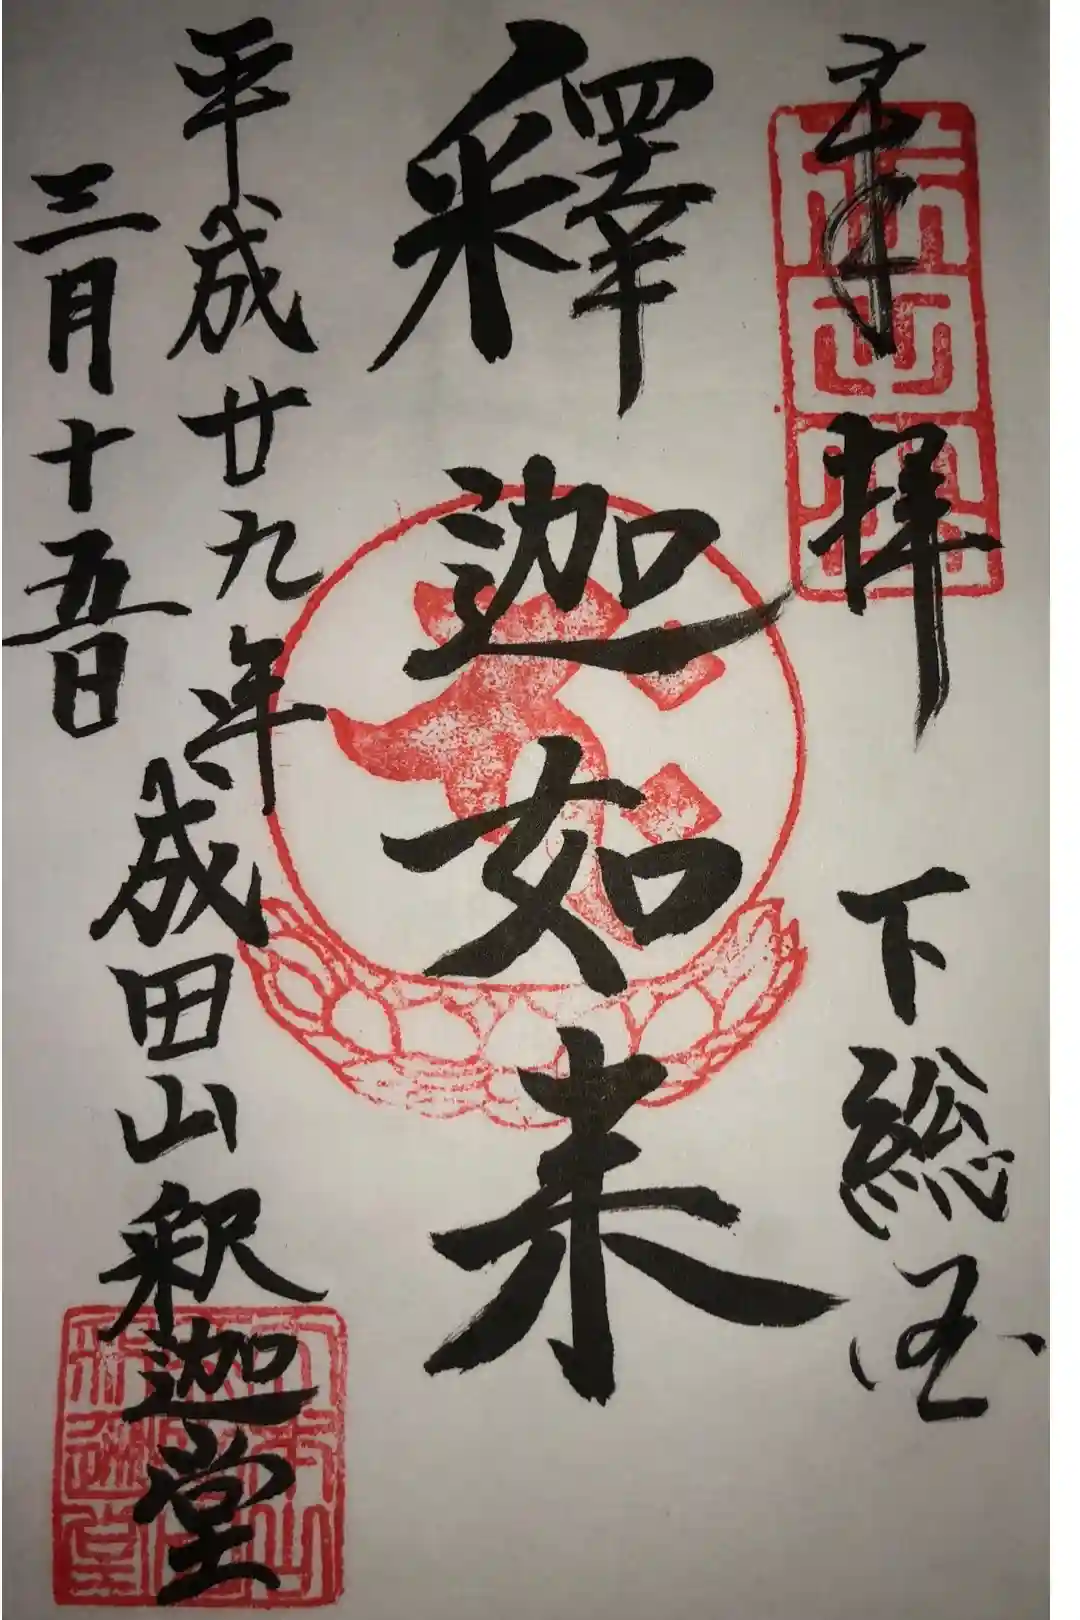 奉拝 下総国
釋迦如来
平成廿九年 成田山釈迦堂
三月十五日